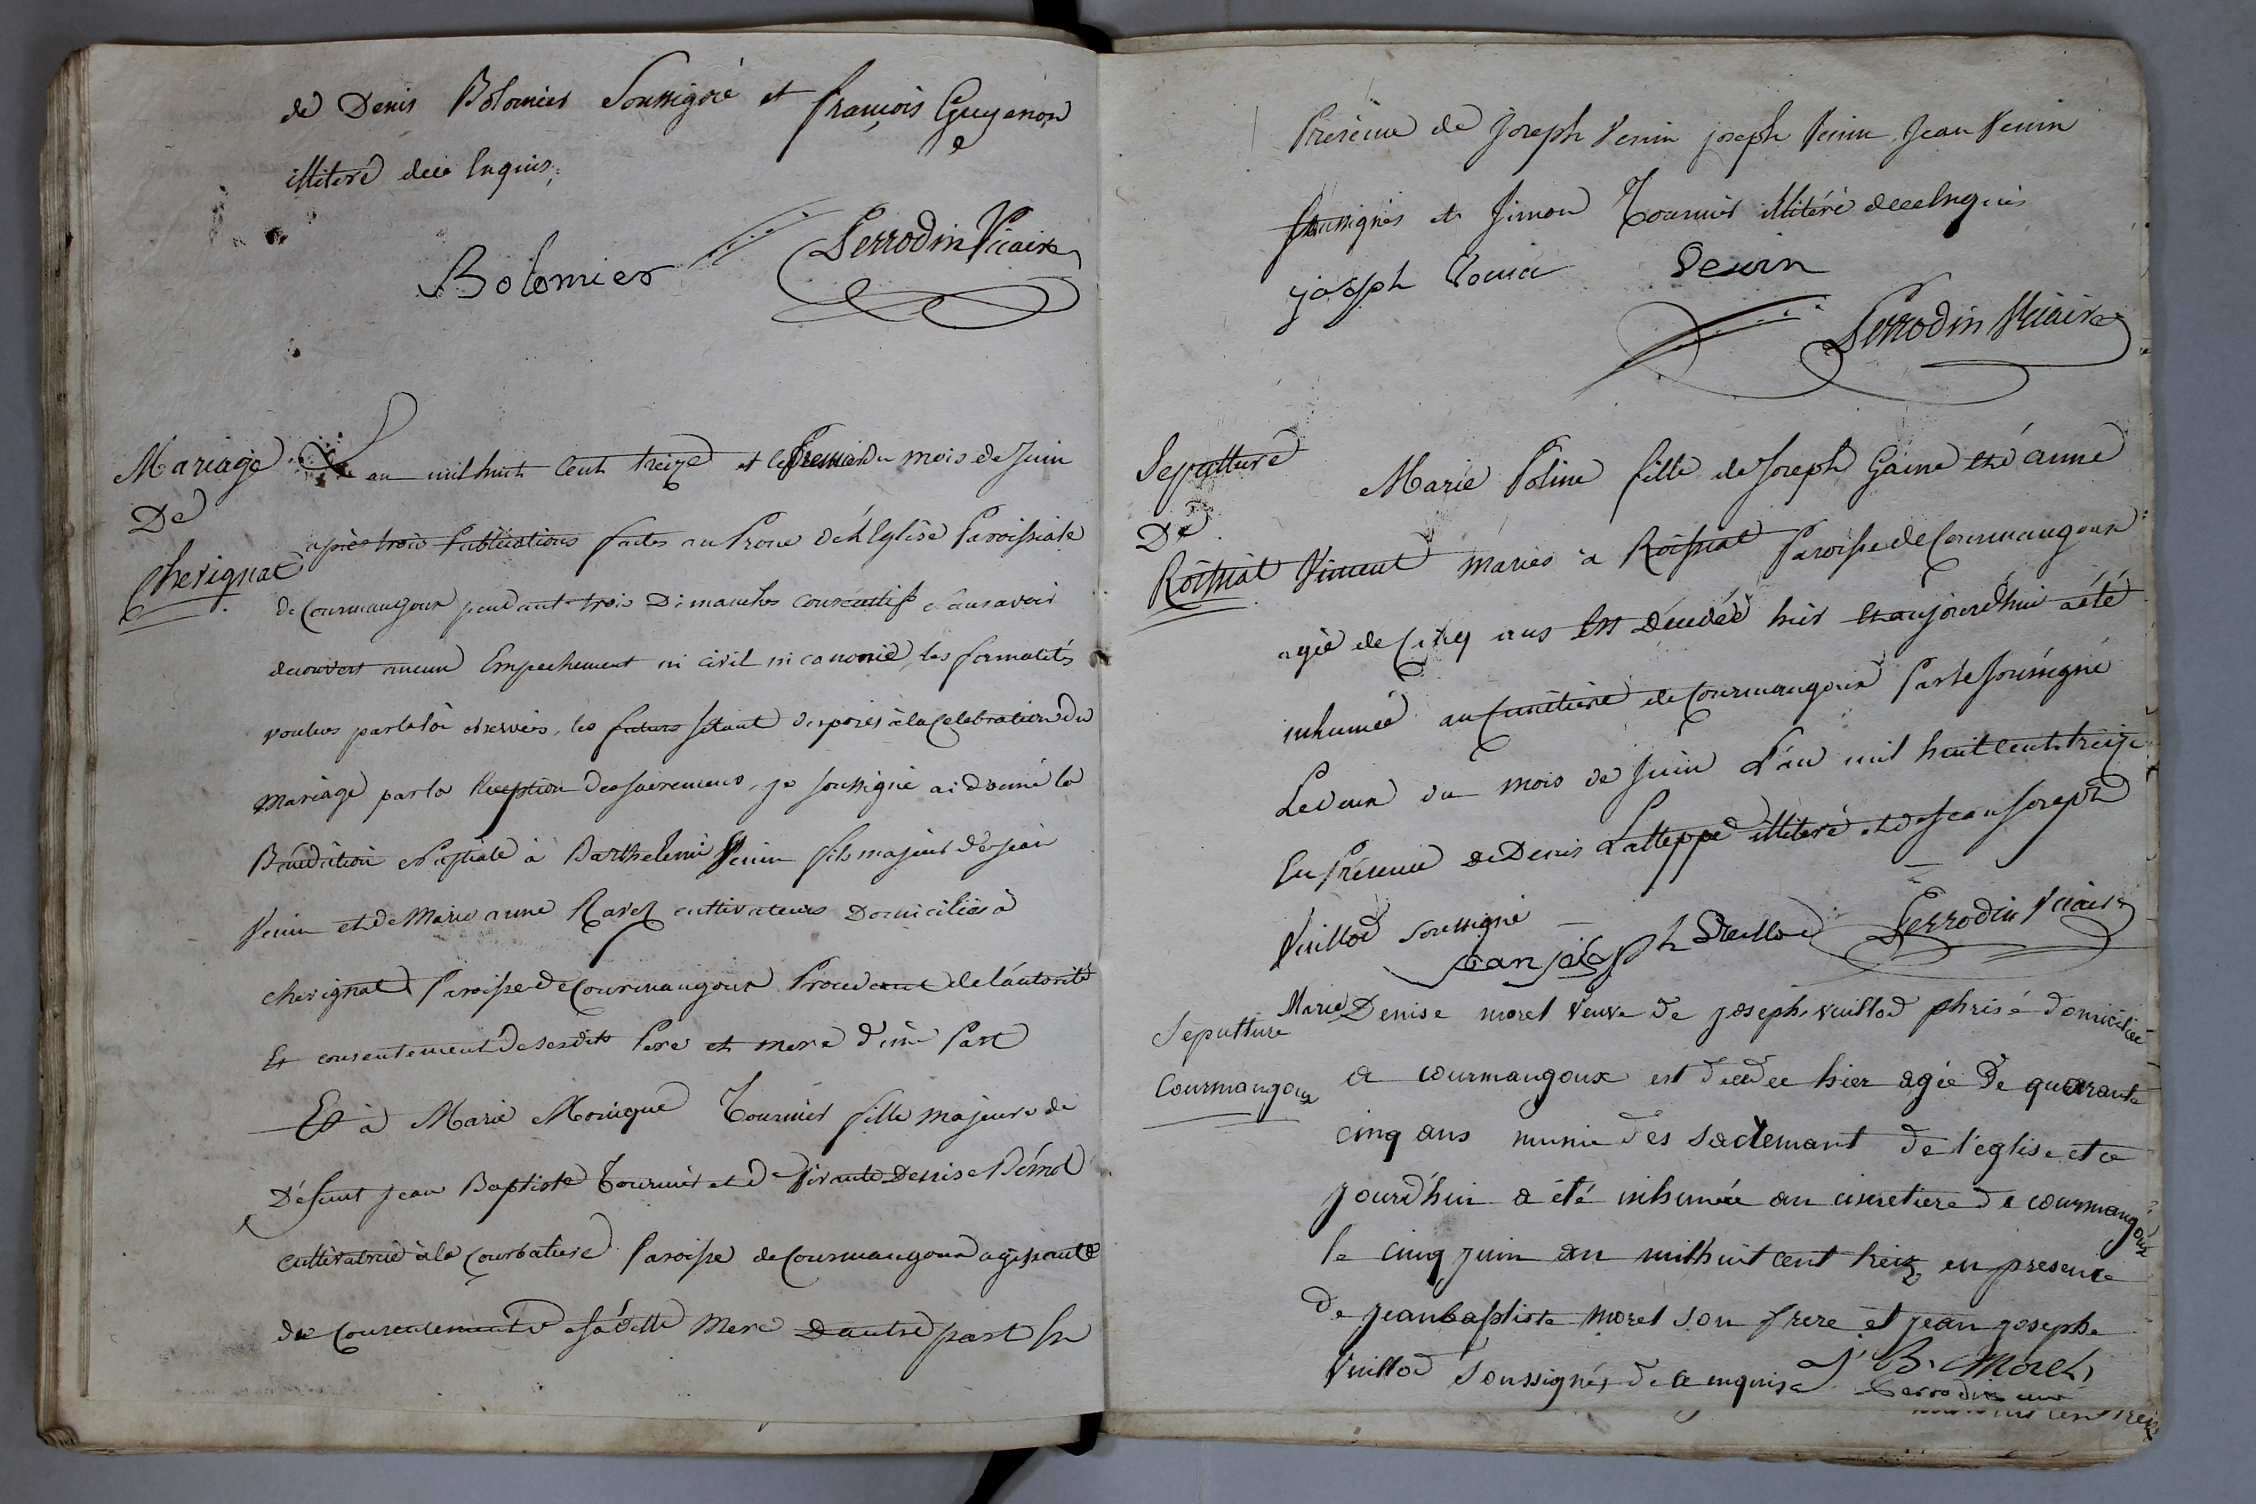 de Denis Bolomier Soussigné et françois Guyenon
illiteré de ce Enquis,
Bolomier Perrodin Vicaire
Mariage
De
Cherignat
L'an mil huit Cent treize et le Premier du mois de Juin
après trois Publications faites au Prone de l'Eglise Paroissiale
de Courmangoux pendant trois Dimanches consécutifs sans avoir
decouvert aucun Empechement ni civil ni canonic, les formalités
voulues par la loi observées, les futurs s'étant disposés à la Celebration du
Mariage par la Reception des sacremens, je soussigné ai donné la
Bénédiction Nuptiale à Barthelemi Venin fils majeur de Jean
Venin et de Marie anne Ravet cultivateurs Domiciliés à
cherignat Paroisse de Courmangoux Procedant de l'autorité
Et consentement de sesdits Pere et mere d'une Part
Et à Marie Monique Tournier fille majeure de
Défunt Jean Baptiste Tournier et de Vivante Denise
cultivatrice à la Courbatiere Paroisse de Courmangoux agissante
du Consentement de sa ditte Mere D'autre part En
Présence de Joseph Venin joseph Venin Jean Venin
Soussignés et Simon Tournier illitéré de ce Enquis
joseph Venin Venin
Perrodin Vicaire
Sepulture
De
Roissiat
Marie Poline fille de Joseph Gaine et d'anne
Vincent mariés à Roissiat Paroisse de Courmangoux
agée de Cinq ans Est Décédée hier et aujourd'hui a été
inhumée au Cimetiere de Courmangoux Par le soussigné
Le deux du mois de Juin L'an mil huit cent treize
En Présence de Denis Latteppe illiteré et de Jean Joseph
Vuillod Soussigné
Jean joseph Vuillod Perrodin Vicaire
Sepulture
Courmangoux
Marie Denise morel Veuve de joseph vuillod domiciliée
a courmangoux est decedee hier agée de quarante
cinq ans munie des sacremant de l'église et ce
jourd'hui a été inhumée au cimetiere de courmangoux
le cinq juin an mil huit cent treize en presence
de jean baptiste morel son frere et jean joseph
Vuillod soussignés de ce enquis J B. Morel
Perrodin
cent treize